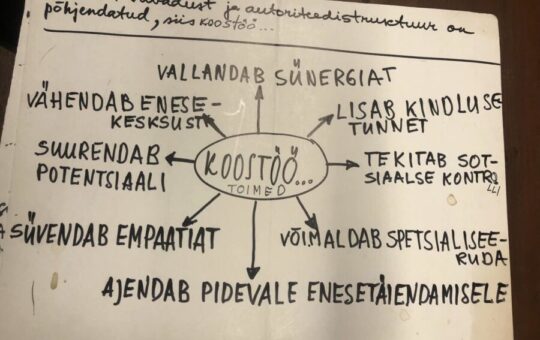 vabadust ja autoriteedistruktuur on
põhjendatud, siis KOOSTÖÖ...
VALLANDAB SÜNERGIAT
VÄHENDAB ENESE-
KESKSUST
LISAB KINDLUSE
TUNNET
SUURENDAB
POTENTSIAALI
KOOSTÖÖ...
TOIMED
TEKITAB SOT-
SIAALSE KONTRO
LLI
SÜVENDAB EMPAATIAT
VÕIMALDAB SPETSIALISEE-
RUDA
AJENDAB PIDEVALE ENESETÄIENDAMISELE